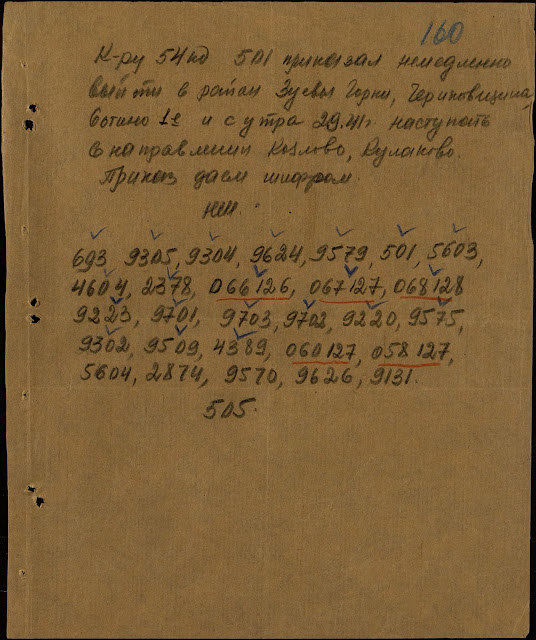 160
К-ру 54кд 501 приказал немедленно
выйти в район Зуевы Горки, Чериковщина,
1е и с утра 29.41г. наступать
в направлении Козлово, Кулаково.
Приказ даем шифром.
693 9305, 9304, 9624, 9579, 501, 5603,
4604, 2378, 066126, 067127, 068128
9223, 9701, 9703, 9702, 9220, 9575,
9302, 9509, 4389, 060127, 058127,
5604, 2874, 9570, 9626, 9131.
505.